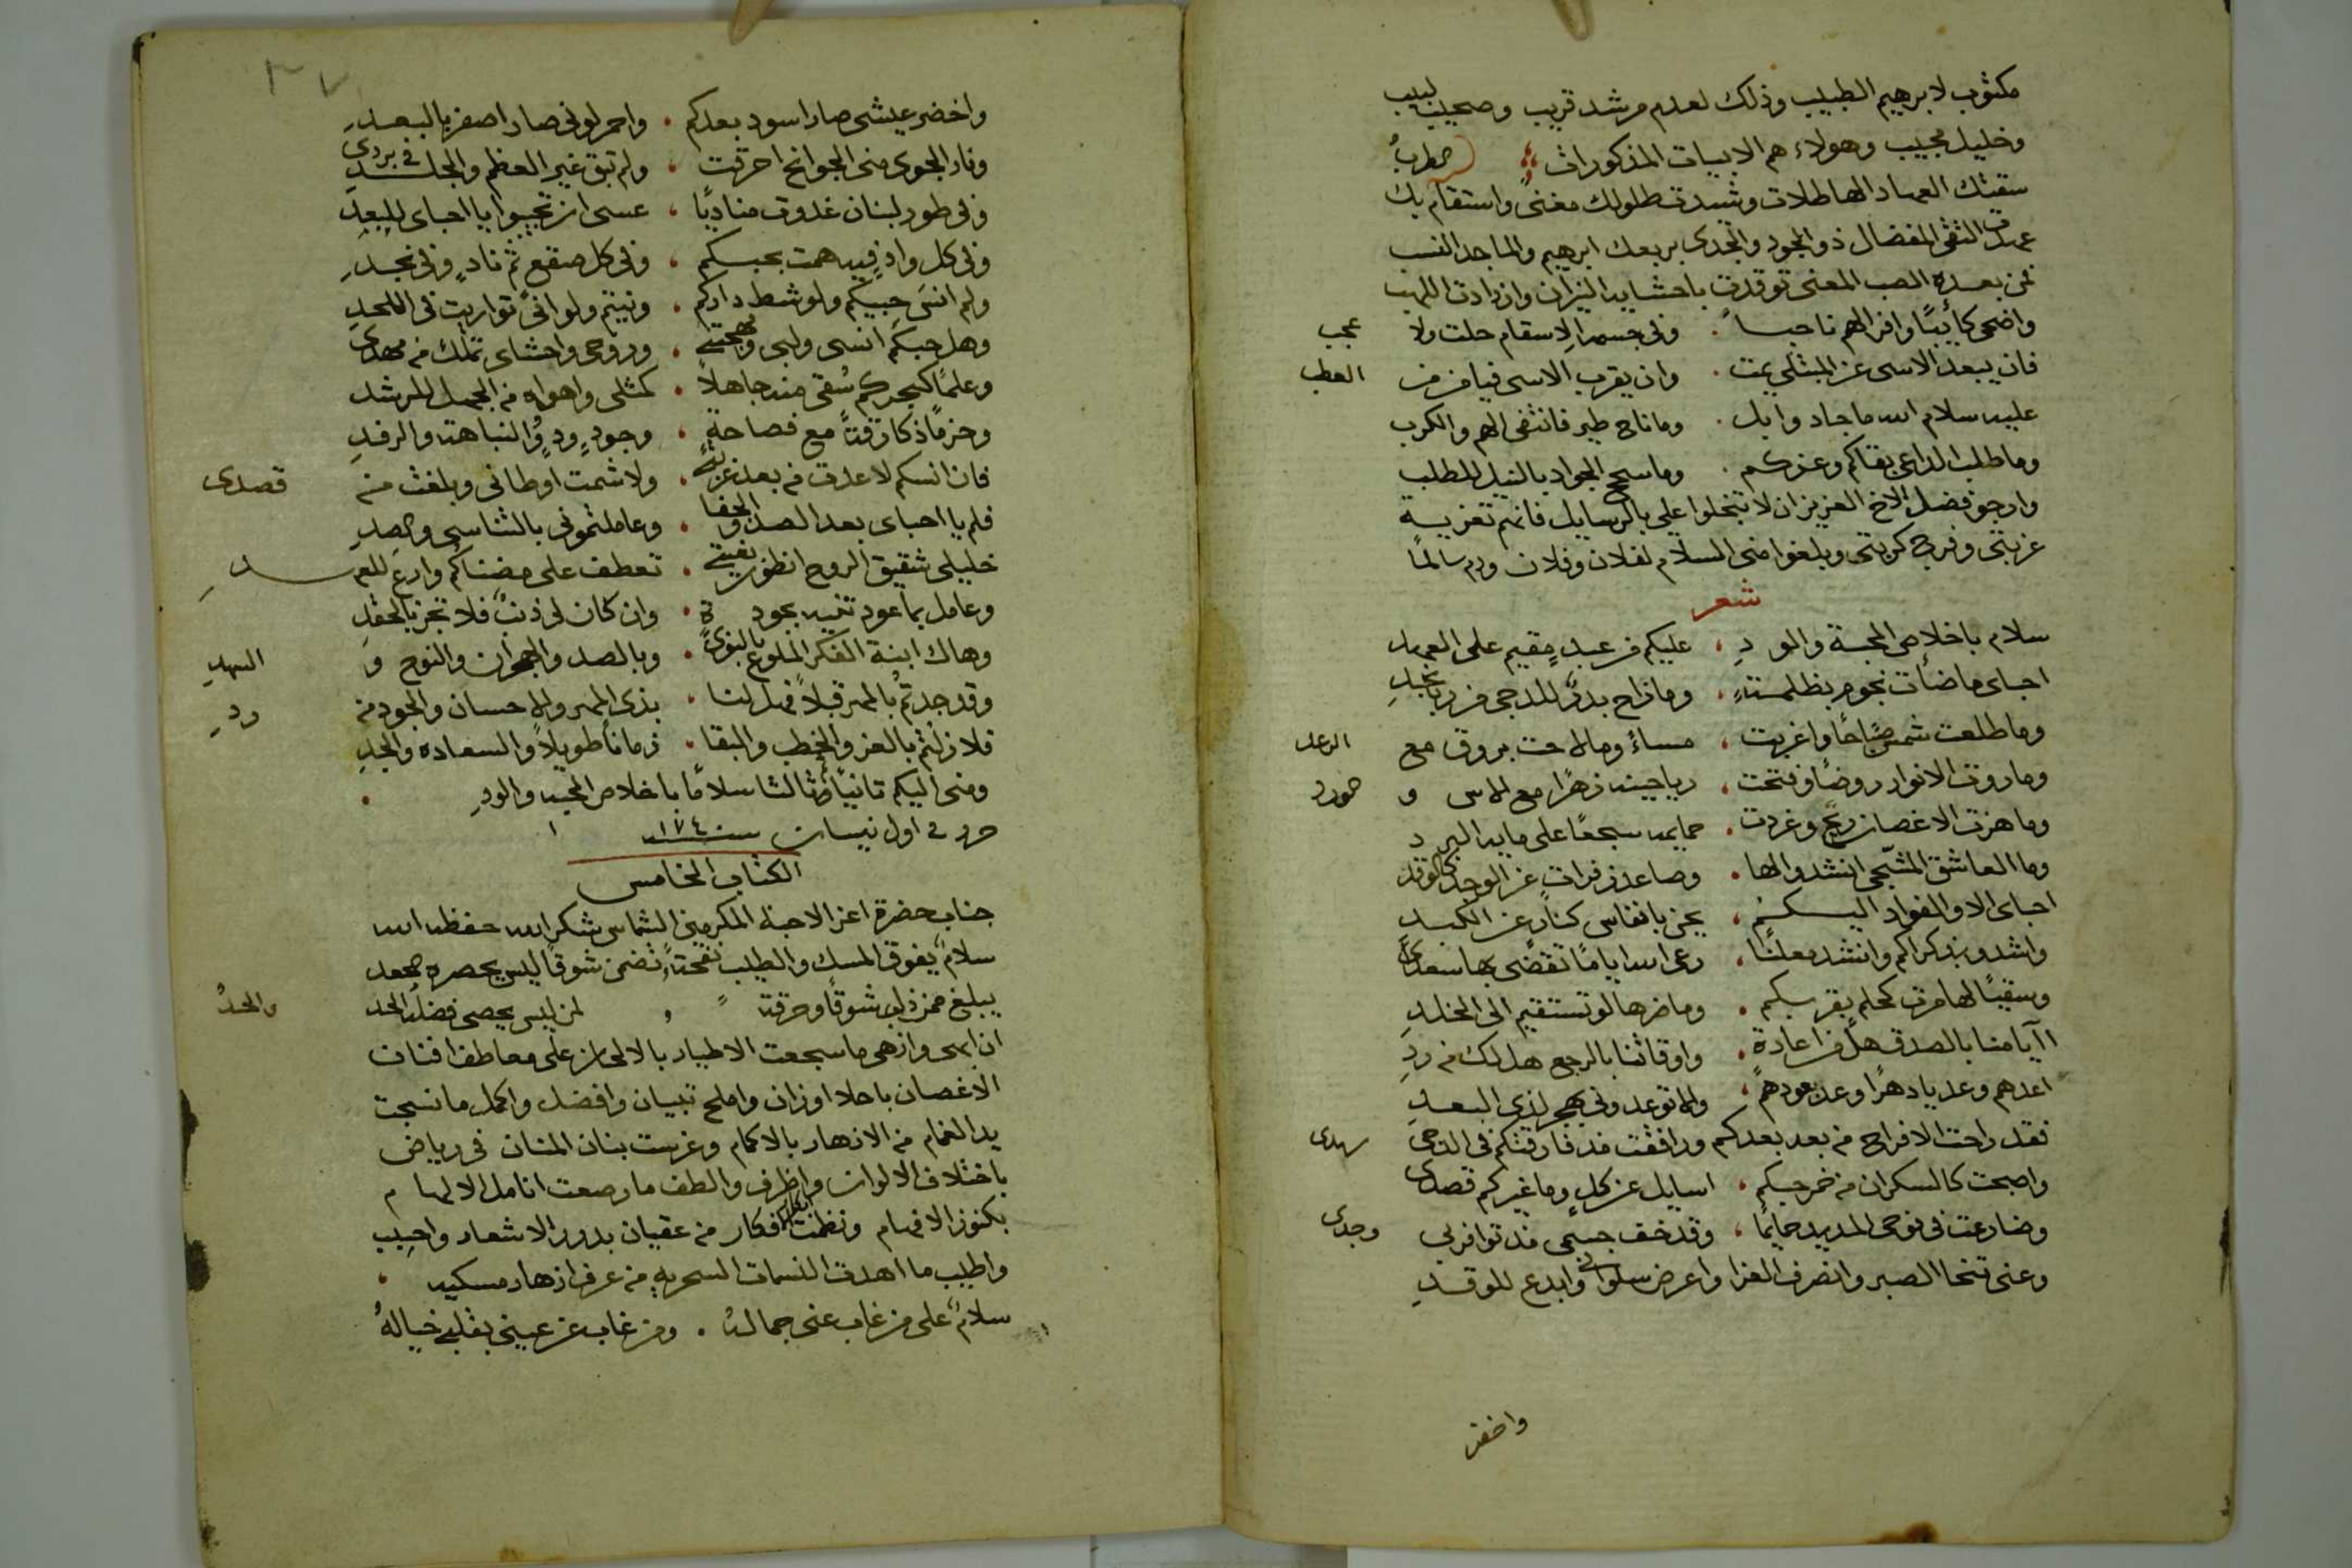 مكتوب لابرهيم الطبيب وذلك لعدم مرشد قريب وصحيب لبيب
وخليل مجيب وهولاء هم الابيات المذكورات
سقتك العهاد الهاطلات وشيدت طلولك مغنى واستقام بك الطربُ
عميدى التقى المفضال ذو الجود والجدى بربعك ابرهيم والماجد النسب
فمن بعده الصب المعنى توقدت باحشايه النيران وازدادت اللهب
واضحى كأيبًا وافر الهم ناحباً . وفى جسمه الاسقام حلت ولا عجب
فان يبعد الاسى عن المبتلى يمت . وان يقرب الاسى فيامن من العطب
عليه سلام الله ما جاد وابل . وما ناح طير فانثنى الهم والكرب
وما طلب الداعى بقاكم وعزكم . وما سمح الجواد بالنيل للمطلب
وارجو فضل الاخ العزيز ان لا تبخلوا على بالرسايل فانهم تعزية
غربتى وفرج كربتى وبلغوا منى السلام لفلان وفلان ودم سالمًا
شعر
سلام باخلاص المحبة والودِ ، عليكم من عبدٍ مقيم على العهد
احباى ما ضأت نجوم بظلمةٍ ، وما زاح بدرٌ للدجى
وما طلعت شمس صباحًا واغربت ، مساءً وما لاحت بروق مع الرعد
وما روت الانوار روضًا وفتحت ، رياحينه زهرًا مع الاس و الورد
وما هزت الاغصان ريح وغردت . حمايمه سجعًا على مايد البرد
وما العاشق المشجى انشد والها . وصاعد زفراتٍ عن الوجد كالوقد
احباى الا والفواد اليكم ، يحن بانفاس كنار عن الكبد
واشدو بذكراكم وانشد معلنًا ، رعى الله ايامًا تقضى بها سعدى
وسقيًا لها مرت كحلم بقربكم . وما ضرها لو تستقيم الى الخلدِ
اايامنا بالصدق هل من اعادة . واوقاتنا بالرجع هل لك من ردِ
اعدهم وعد يا دهرًا وعد بعودهم ، والا توعدونى بهجر لذى البعدِ
نقد راحت الافراح من بعد بعدكم ورافقت مذ فارقتكم فى الدجى سهدى
واصبحت كالسكران من خمر حبكم . اسايل عن كلٍ وما غيركم قصدى
وضارعت فى نوحى المديد حمايمًا ، وقد خف جسمى مذ توافر بى وجدى
وعنى تنحا الصبر وانصرف العزا واعرض سلوانى وابدع للوقدِ
واخضر
٣٧
واخضر عيشى صار اسود بعدكم . واحمر لونى صار اصفر بالبعدِ
ونار الجوى منى الجوانح احرقت ، ولم تبق غير العظم والجلد فى بردى
وفى طور لبنان غدوت مناديًا ، عسى ان تجيبوا يا احباى للبعدِ
وفى كل وادٍ فيه همت بحبكم ، وفى كل صقع ثم نادٍ وفى نجدِ
ولم انسَ حبيكم ولو شط داركم . ونيتم ولو انى تواريت فى اللحدِ
وهل حبكم انسى ولبى ومهجتى . وروحى واحشاى تملك من مهدى
وعلمًا كبحركم سُقى منه جاهلاً . كمثلى واهواه من الجهل للرشد
وحزمًا ذكا رقةً مع فصاحةٍ . وجودٍ ودٍ والنباهة والرفدِ
فان انسكم لا عدت من بعد غربتى . ولا شمت اوطانى وبلغت من قصدى
فلم يا احباى بعد الصد والجفا . وعاملتمونى بالتناسى والصدِ
خليلى شقيق الروح انظر بغيتى . تعطف على مضناكم وارع للعهدِ
وعامل بما عودتنيه بجودة . وان كان لى ذنبٌ فلا تجز بالحقدِ
وهاك ابنة الفكر الملوع بالنوى . وبالصد والهجران والنوح و السهدِ
وقد جدتم بالمهر قبلاً فهل لنا . بذى المهر والاحسان والجود من ردِ
فلا زلتم بالعز والخطب والبقا . زمانًا طويلاً والسعاده والمجدِ
ومنى اليكم ثانيًا ثم ثالثًا سلامًا باخلاص المحبه والودِ .
حرر فى اول نيسان سنة ١٧٤٠
الكتاب الخامس
جناب حضرة اعز الاحبة المكرمين الشماس شكرالله حفظه الله
سلامٌ يفوق المسك والطيب نفحةً تضمن شوقًا ليس يحصره العد
يبلغ ممن ذاب شوقًا وحرقة لمن ليس يحصى فضله الحد والحدُ
ان ابهى وازهى ما سجعت الاطيار بالالحان على معاطف افنان
الاغصان باحلا اوزان واملح تبيان وافضل واكمل ما نسجت
يد الغمام من الازهار بالاكمام وغرست بنان المنان فى رياض
باختلاف الالوان واظرف والطف ما رصعت انامل الالهام
بكنوز الافهام ونظمت افكار من عقيان بدور الاشعار واحبب
واطيب ما اهدت النسمات السحريه من عرف ازهار مسكيه .
سلامٌ على من غاب عنى جماله . ومن غاب عن عينى بقلبى خيالهُ